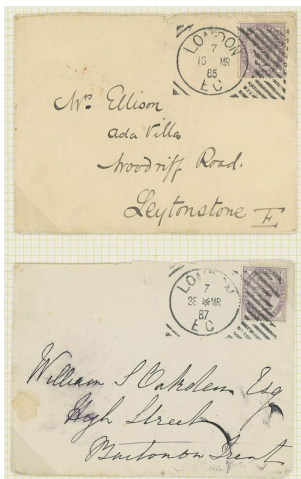 LONDON
7
18 MR
85
EC
Mrs. Ellison
Ada Villa
Woodriff Road.
Leytonstone E
LONDON
7
26 MR
87
EC
William S Oakden Esq
High Street
Burton on Trent